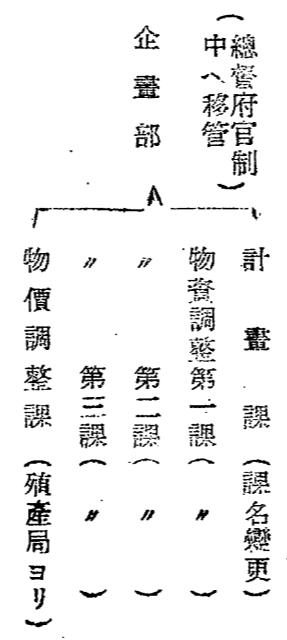 (總督府官制
中ヘ移管)
企畫部
計畫課(課名變更)
物資調整第一課(〃)
〃第二課(〃)
〃第三課(〃)
物價調整課(殖產局ヨリ)